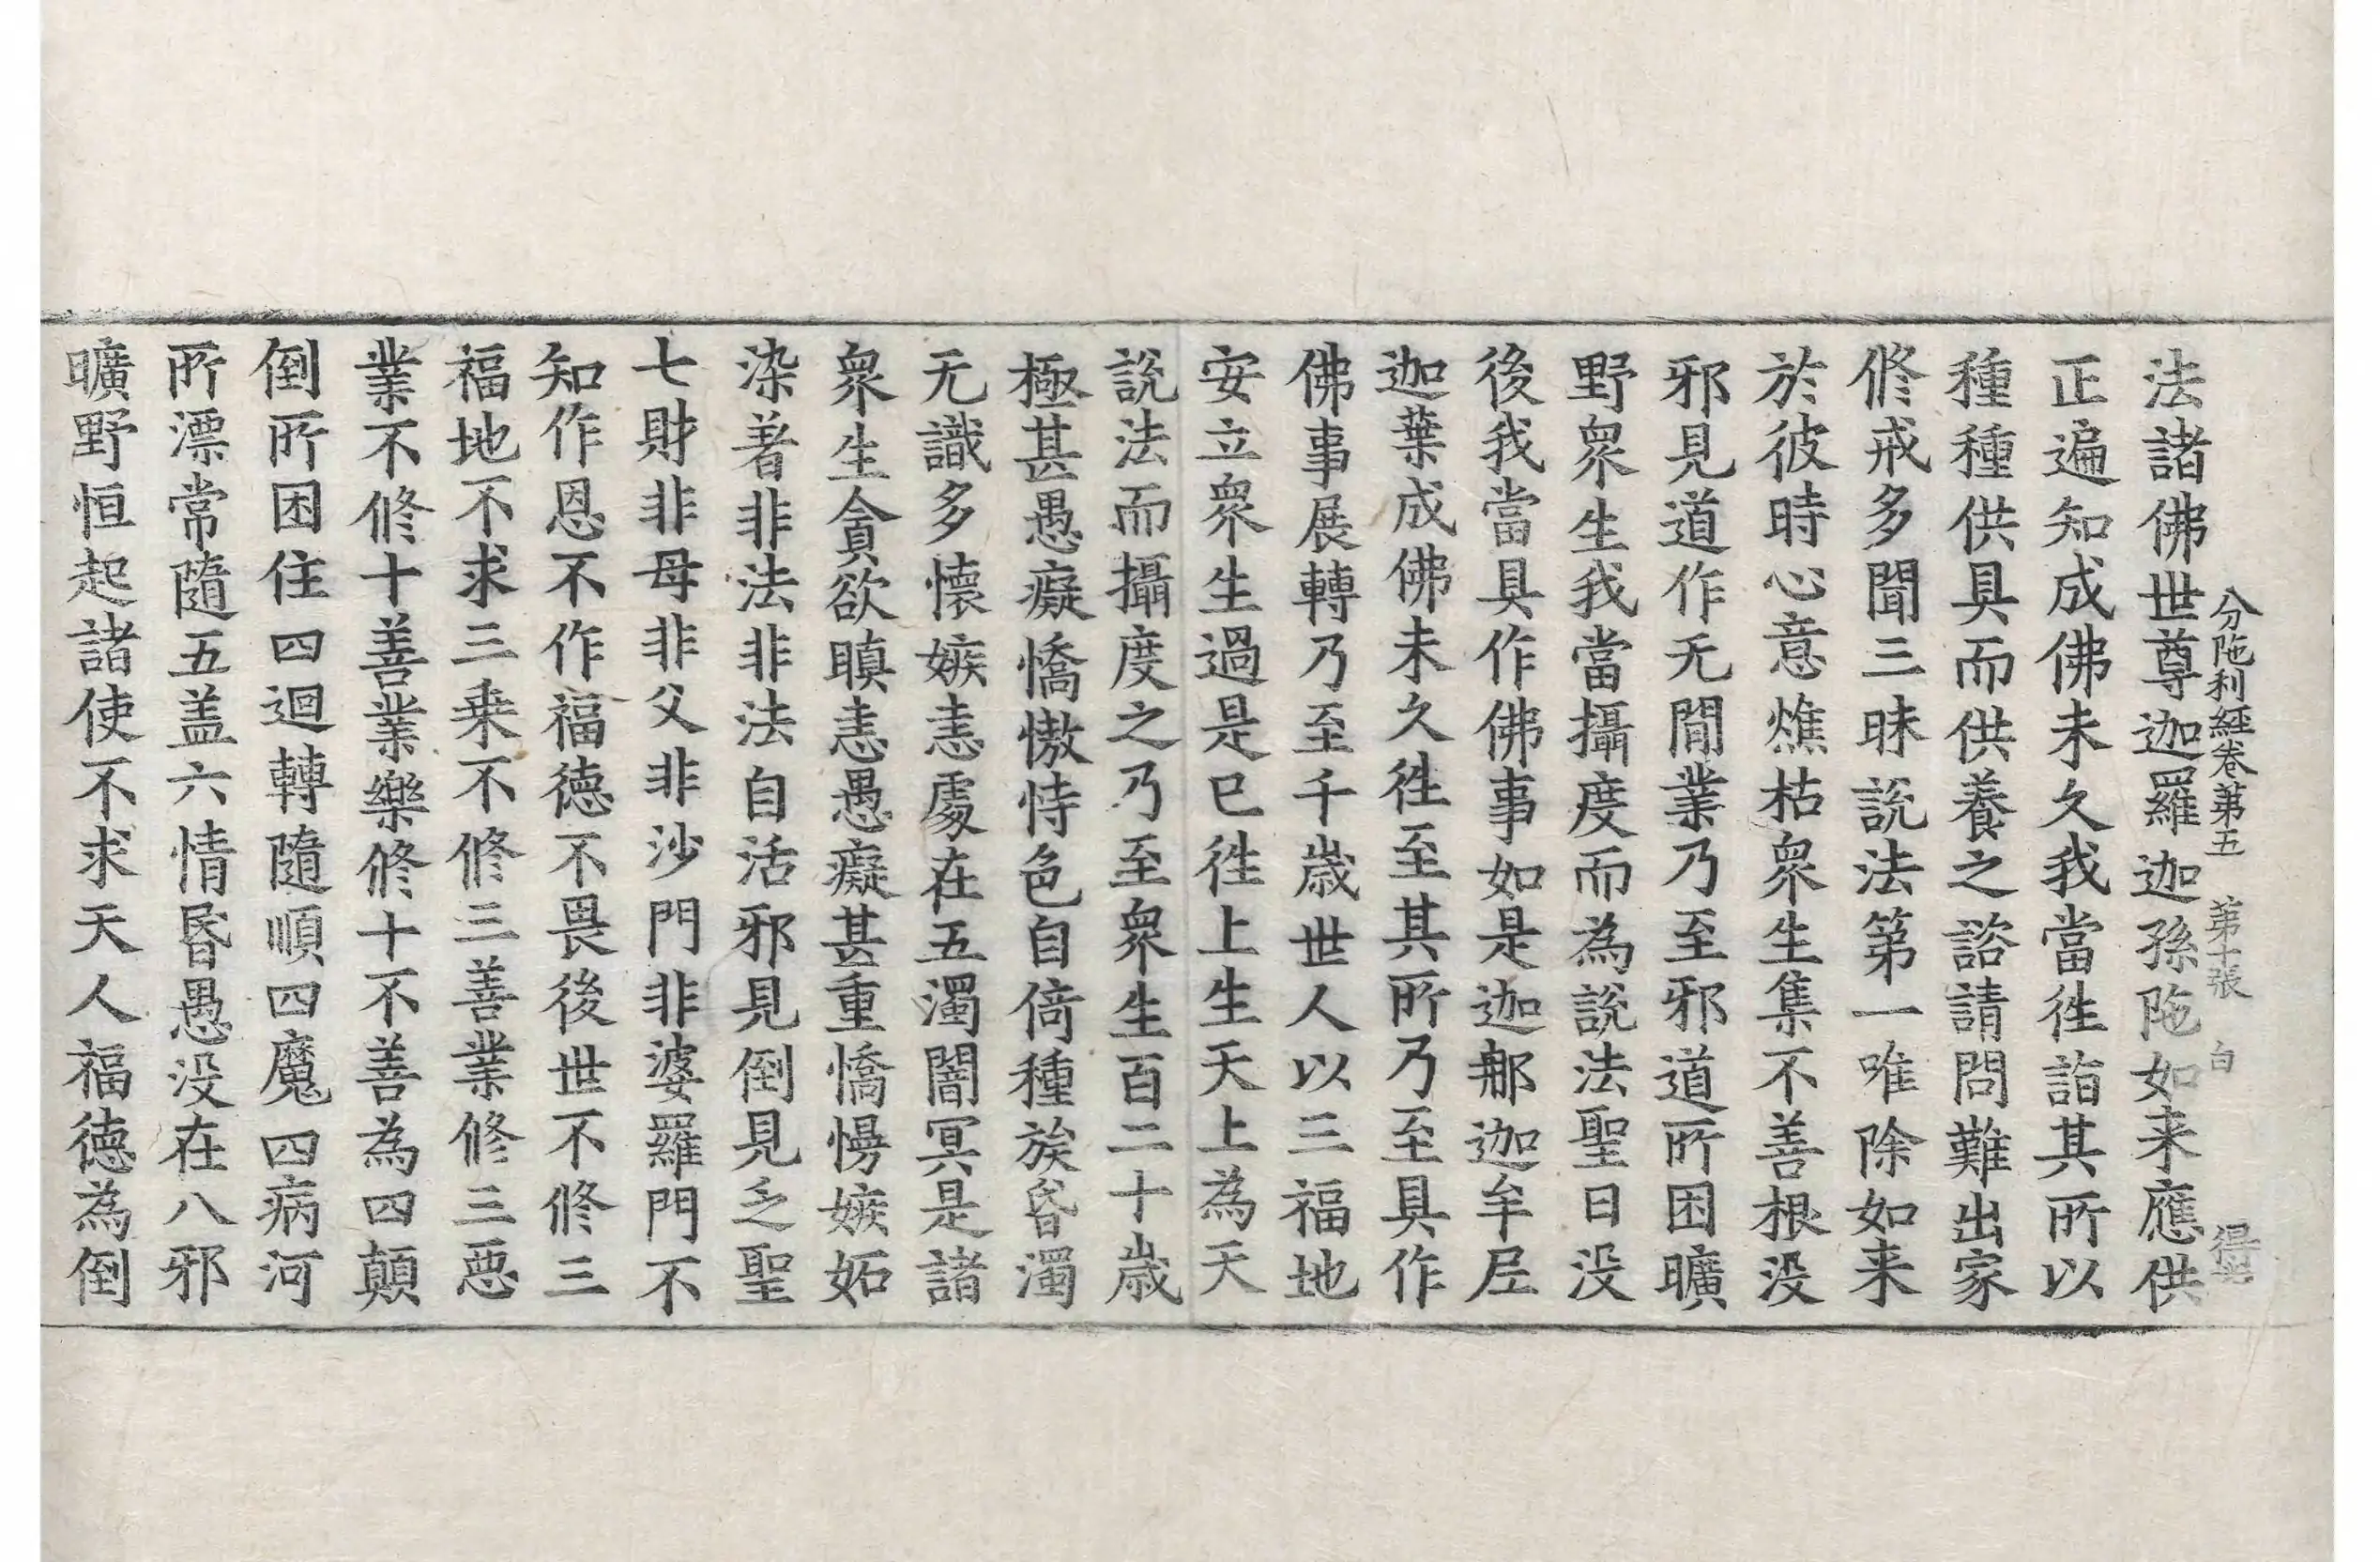 分陁利經卷第五 第十張 白
法諸佛世尊迦羅迦孫陁如来應供
正遍知成佛未久我當徃詣其所以
種種供具而供養之諮請問難出家
修戒多聞三昧說法第一唯除如来
於彼時心意燋枯衆生集不善根没
邪見道作无閒業乃至邪道所困曠
野衆生我當攝度而為說法聖日没
後我當具作佛事如是迦那迦牟尼
迦葉成佛未久徃至其所乃至具作
佛事展轉乃至千歳世人以三福地
安立衆生過是已徃上生天上為天
說法而攝度之乃至衆生百二十歳
極甚愚癡憍慠恃色自倚種族昏濁
无識多懷嫉恚處在五濁闇冥是諸
衆生貪欲瞋恚愚癡甚重憍慢嫉妬
染著非法非法自活邪見倒見乏聖
七財非母非父非沙門非婆羅門不
知作恩不作福德不畏後世不修三
福地不求三乗不修三善業修三惡
業不修十善業樂修十不善為四顛
倒所困住四迴轉隨順四魔四病河
所漂常隨五盖六情昬愚没在八邪
曠野恒起諸使不求天人福德為倒